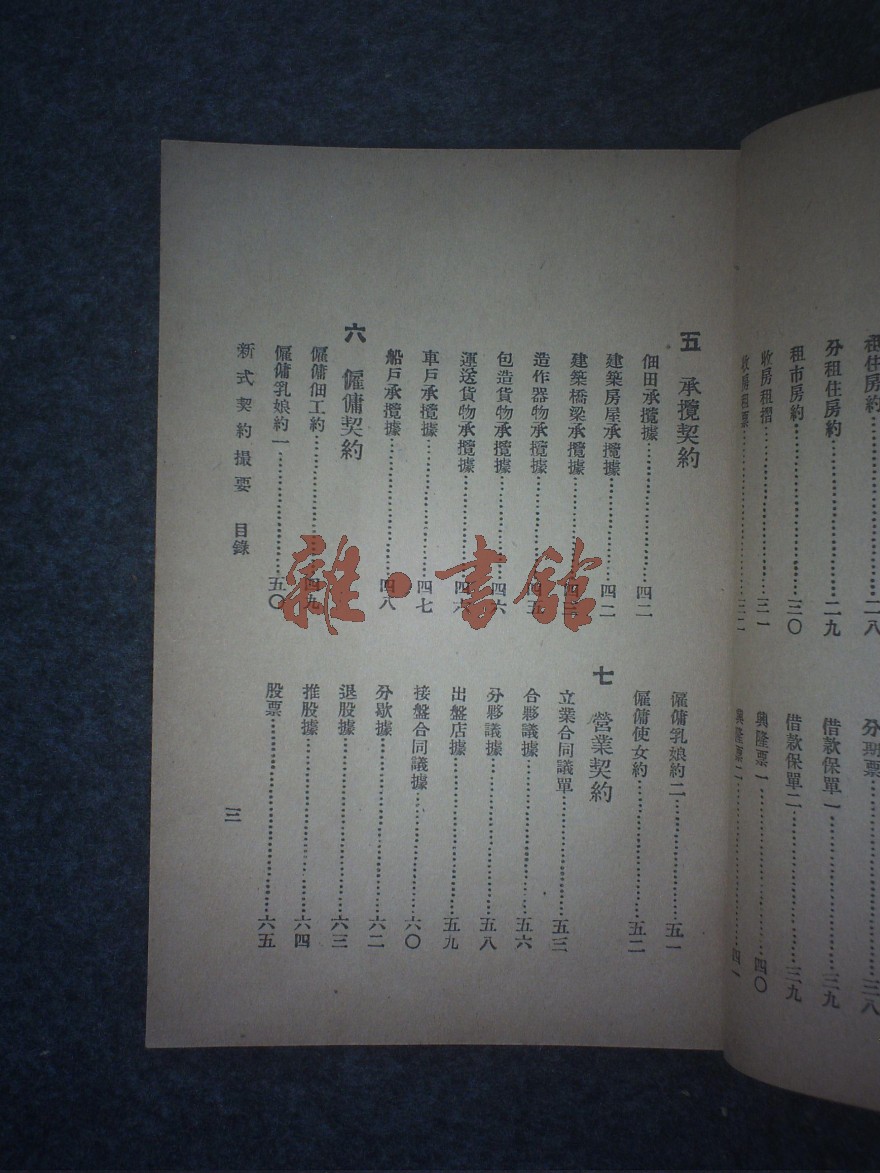 租住房約……二八
分租住房約……二九
租市房約……三〇
收房租摺……三一
收房租票……三二
分期票……三八
借款保單一……三九
借款保單二……三九
興隆票一……四〇
興隆票二……四一
五 承攬契約
佃田承攬據……四二
建築房屋承攬據……四二
建築橋梁承攬據……
造作器物承攬據……四五
包造貨物承攬據……四六
運送貨物承攬據……四六
車戶承攬據……四七
船戶承攬據……四八
六 僱傭契約
僱傭佃工約……四九
僱傭乳娘約一……五〇
僱傭乳娘約二……五一
僱傭使女約……五二
七 營業契約
立業合同議單……五三
合夥議據……五六
分夥議據……五八
出盤店據……五九
接盤合同議據……六〇
分歇據……六二
退股據……六三
推股據……六四
股票……六五
新式契約撮要 目錄
三
雜·書館